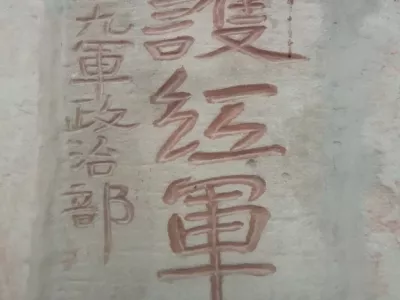 護紅軍
九軍政治部